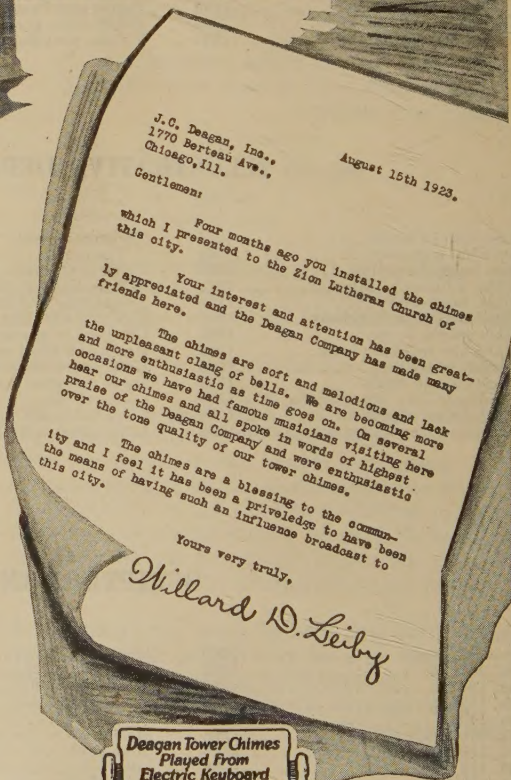 J.C. Deagan, Inc.,
1770 Berteau Ave.,
Chicago, Ill.
August 15th 1923.
Gentlemen:
Four months ago you installed the chimes
which I presented to the Zion Lutheran Church of
this city.
Your interest and attention has been great-
ly appreciated and the Deagan Company has made many
friends here.
The chimes are soft and melodious and lack
the unpleasant clang of bells. We are becoming more
and more enthusiastic as time goes on. On several
occasions we have had famous musicians visiting here
hear our chimes and all spoke in words of highest
praise of the Deagan Company and were enthusiastic
over the tone quality of our tower chimes.
The chimes are a blessing to the commun-
ity and I feel it has been a priveledge to have been
the means of having such an influence broadcast to
this city.
Yours very truly,
Willard D. Leiby
Deagan Tower Chimes
Played From
Electric Keyboard